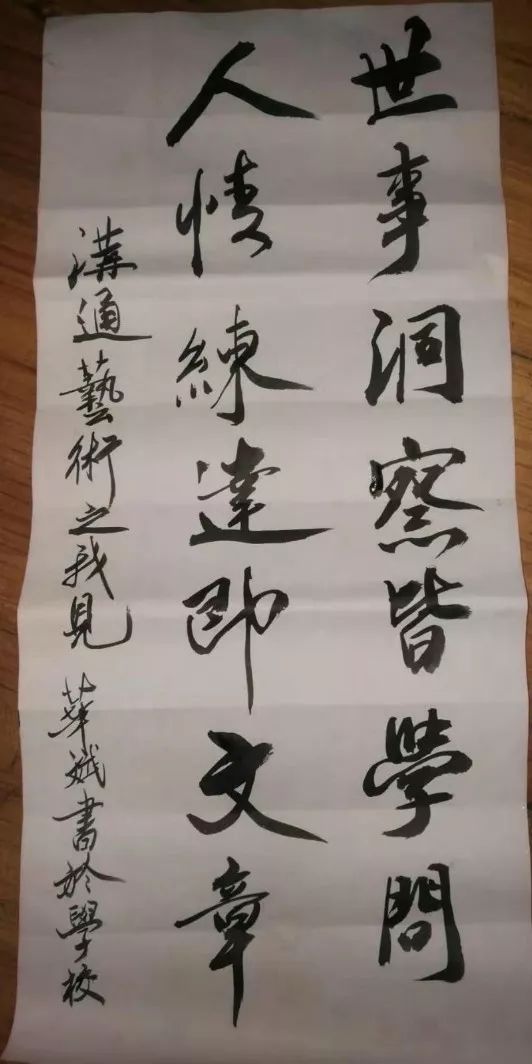 世事洞察皆學問
人情練達即文章
溝通藝術之我見 華斌書於學校